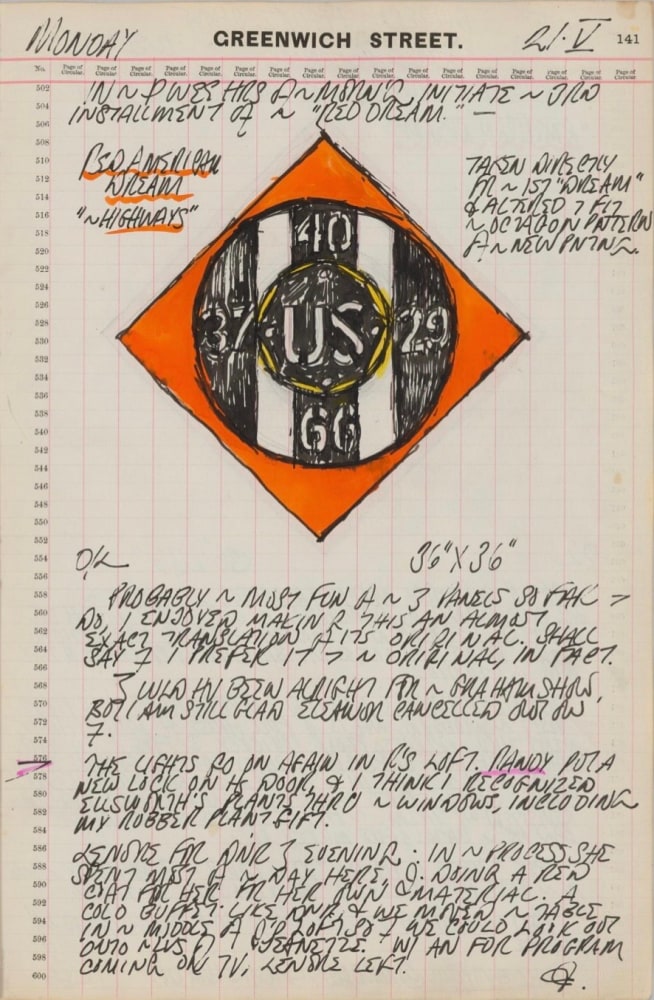 MONDAY
GREENWICH STREET.
21·V
141
No.
Page of Circular. Page of Circular. Page of Circular. Page of Circular. Page of Circular. Page of Circular. Page of Circular. Page of Circular. Page of Circular. Page of Circular. Page of Circular. Page of Circular. Page of Circular. Page of Circular. Page of Circular. Page of Circular.
IN ~ HRS ~ MORN'G, INITIATE ~ 3RD
INSTALLMENT OF ~ "RED DREAM." —
RED AMERICAN
DREAM
"~HIGHWAYS"
TAKEN DIRECTLY
FR ~ 1ST "DREAM"
& ALTERED 7 FIT
~ OCTAGON PATTERN
~ NEW PNTNG.
40
37
US
29
66
36"X36"
PROBABLY ~ MOST FUN ~ 3 PANELS SO FAR 7
DO, I ENJOYED MAKING THIS AN ALMOST
EXACT TRANSLATION OF ITS ORIGINAL. SHALL
SAY 7 I PREFER IT 7 ~ ORIGINAL, IN FACT.
WLD HV BEEN ALRIGHT FOR ~ GRAHAM SHOW,
BUT I AM STILL GLAD ELEANOR CANCELLED OUT ON
7.
THE LIGHTS GO ON AGAIN IN R'S LOFT. RANDY PUT A
NEW LOCK ON DOOR, & I THINK I RECOGNIZED
ELLSWORTH'S PLANTS THRU ~ WINDOWS, INCLUDING
MY RUBBER PLANT GIFT.
LENORE FOR DNR EVENING: IN ~ PROCESS SHE
SPENT MOST OF ~ DAY HERE, DOING A RED
COAT FOR HER FR HER OWN MATERIAL. A
COLD BUFFET-LIKE DNR & WE MOVED ~ TABLE
IN ~ MIDDLE OF LOFT SO WE COULD LOOK OUT
ONTO "JEANETTE." W/ AN FOR PROGRAM
COMING ON TV, LENORE LEFT.
502
504
506
508
510
512
514
516
518
520
522
524
526
528
530
532
534
536
538
540
542
544
546
548
550
552
554
556
558
560
562
564
566
568
570
572
574
576
578
580
582
584
586
588
590
592
594
596
598
600